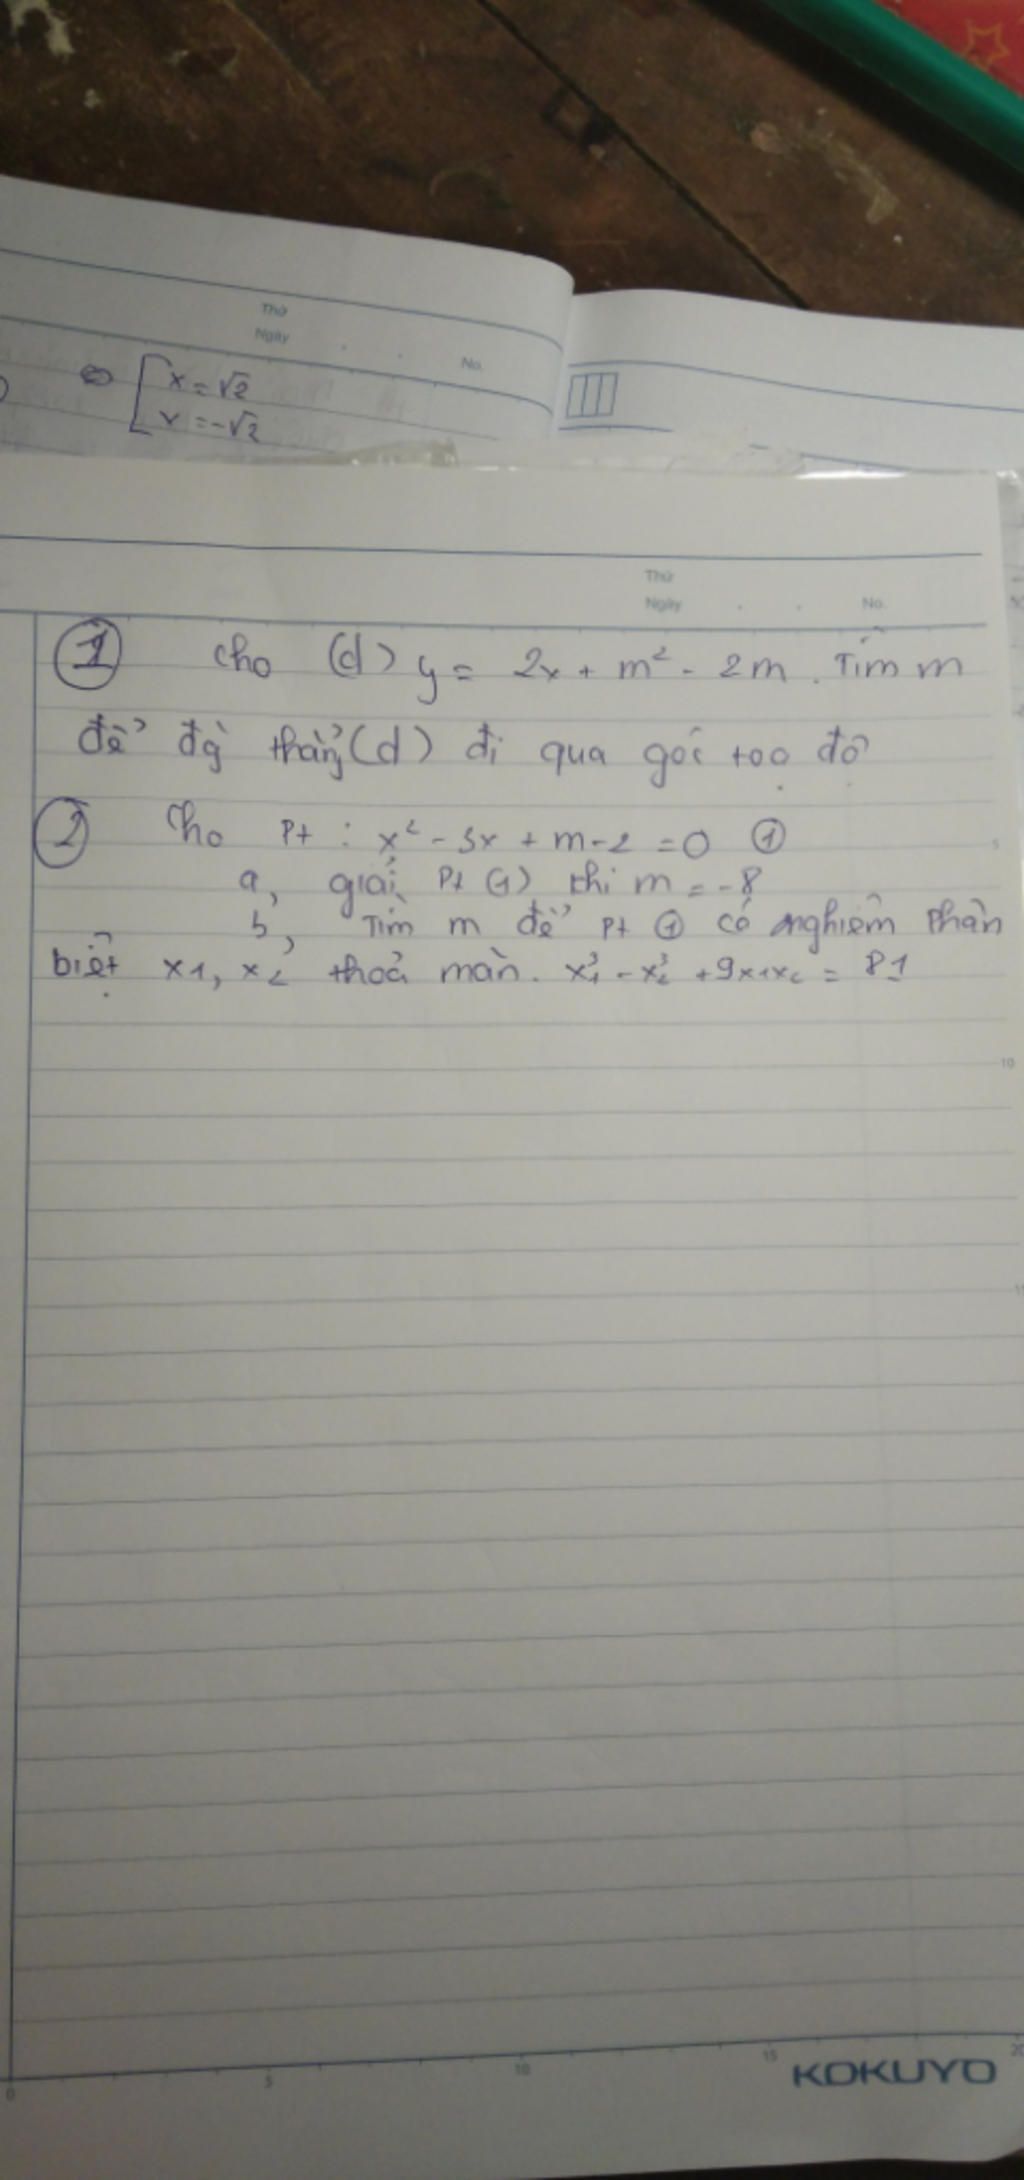 Thứ
Ngày . . No.
⇔ [ x = √2
x = -√2
Thứ
Ngày . . No.
① Cho (d) y = 2x + m² - 2m . Tìm m
để đg thẳng (d) đi qua gốc toạ độ
② Cho Pt : x² - 3x + m - 2 = 0 ①
a, giải Pt (1) khi m = -8
b, Tìm m để Pt ① có nghiệm phân
biệt x1, x2 thoả mãn. x₁³ - x₂³ + 9x1x2 = 81
5
10
15
0 5 10 15 20
KOKUYO